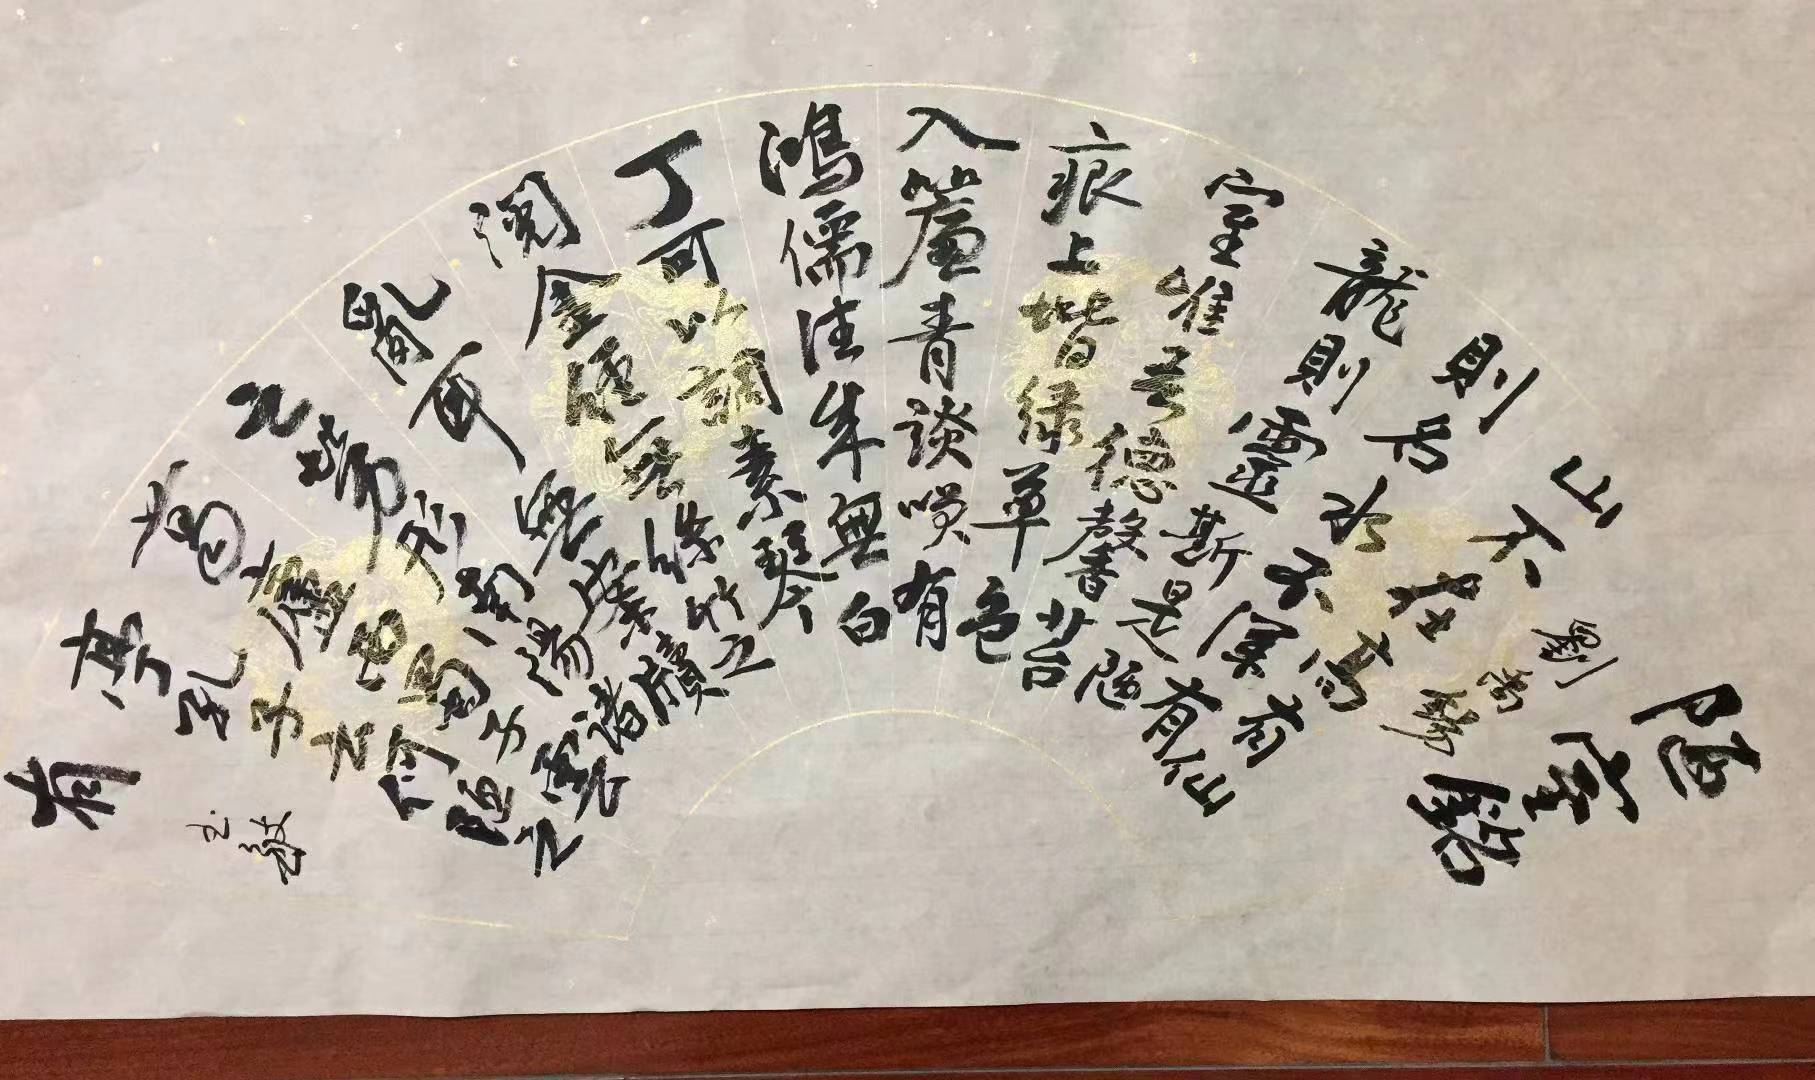 陋室銘
劉禹錫
山不在高有仙
則名水不深有
龍則靈斯是陋
室唯吾德馨苔
痕上階绿草色
入簾青談咲有
鴻儒往来無白
丁可以調素琴
閱金經無絲竹之
亂耳無案牘
之勞形南陽諸
葛廬西蜀子雲
亭孔子云何陋之
有